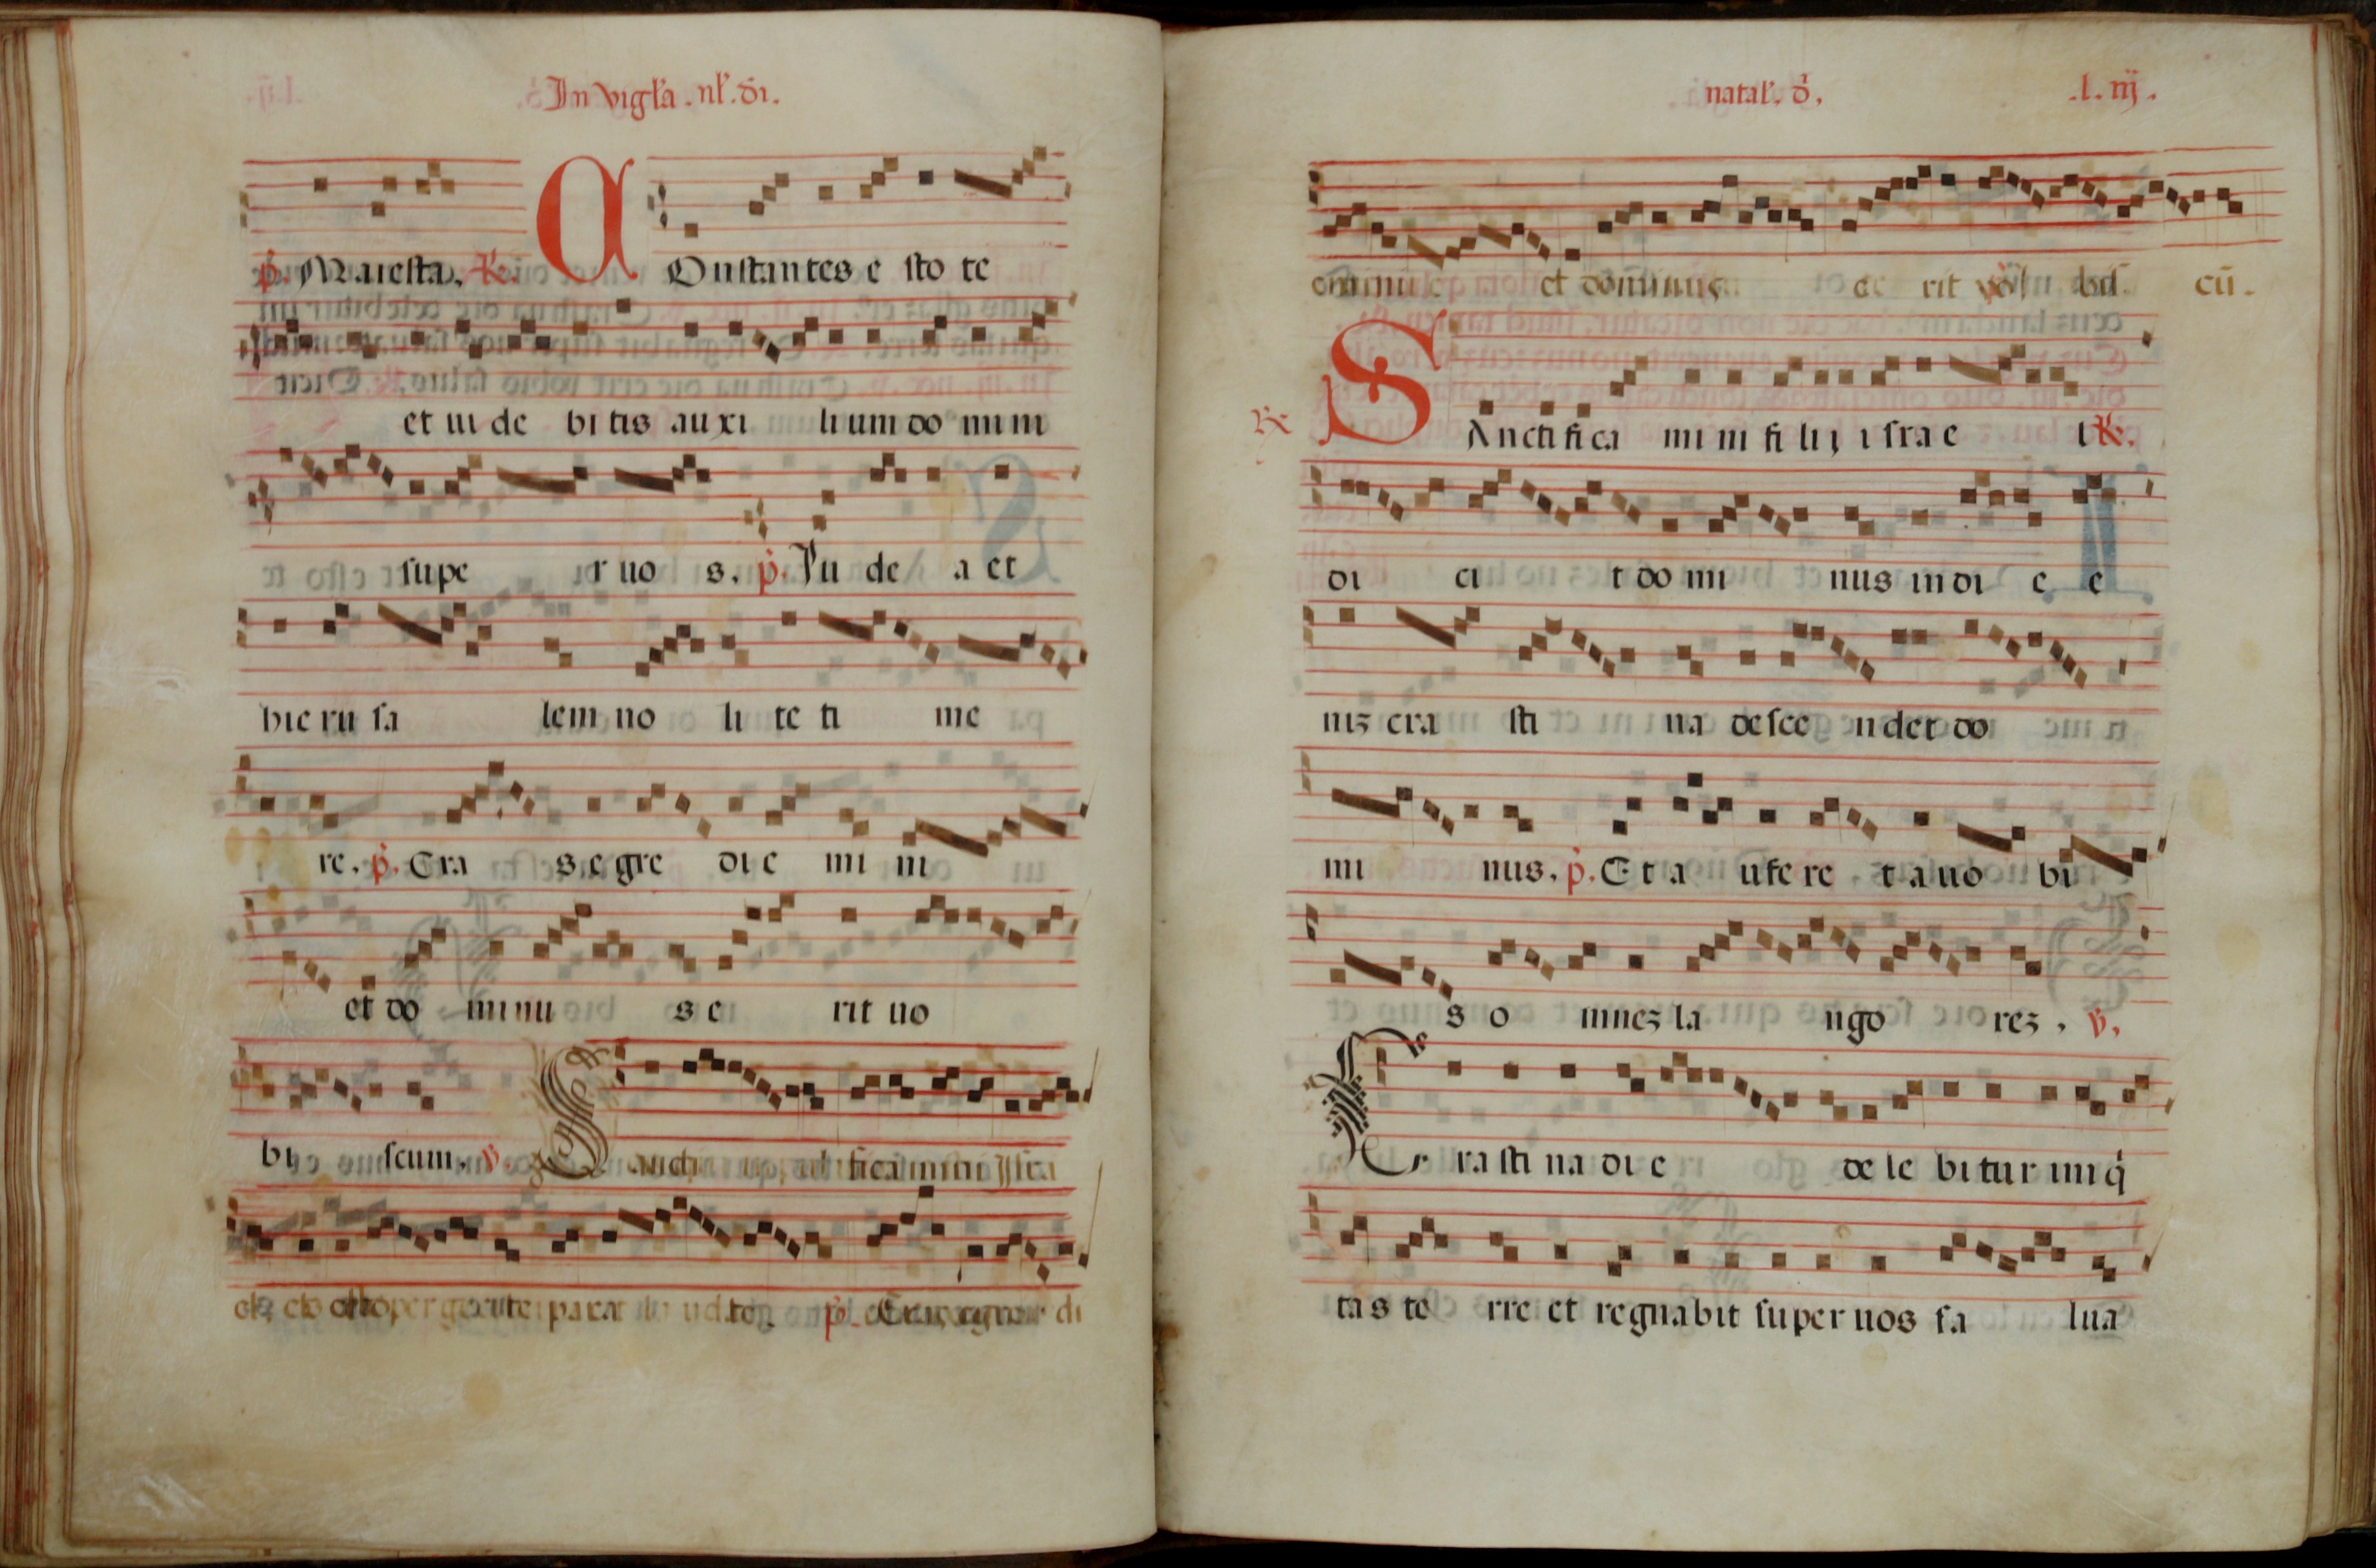 In vigl'a. nl'. di.
p. Maiesta. R.
COnstantes e sto te
et ui de bi tis au xi li um do mi ni
supe r uo s. p. Iu de a et
hie ru sa lem no li te ti me
re. p. Cra s e gre di e mi ni
et do mi nu s e rit uo
bi scum. v.
para
natal'. d. .l. iij.
et dominus e rit
cū.
R SAncti fi ca mi ni fi li j i srae l R.
di ci t do mi nus in di e e
niz cra sti na desce ndet do
mi nus. p. E t a ufe re t a uo bi
s o mnez la ngo rez. v.
C ra sti na di e de le bi tur iniq
ta s te rre et regnabit super nos sa lua